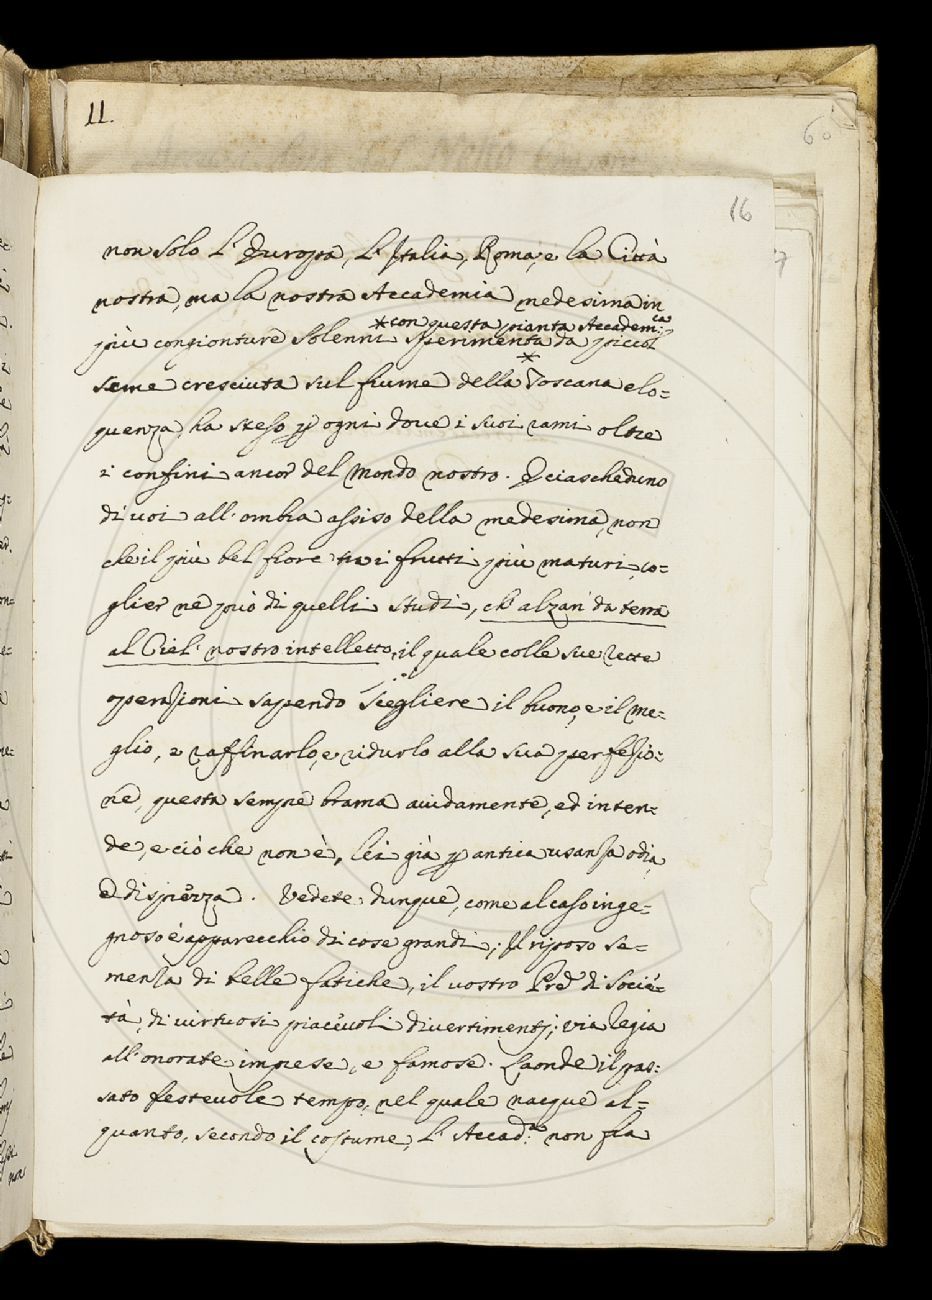 11.
60
16
7
non solo l'Europa, l'Italia, Roma, e la Città
nostra, ma la nostra Accademia medesima in
*con questa pianta Accadem:ca
più congionture solenni sperimenta da piccol
*
seme cresciuta sul fiume della Toscana elo=
quenza, ha steso p ogni dove i suoi rami oltre
i confini ancor del Mondo nostro. E ciascheduno
di voi all'ombra assiso della medesima, non
che il più bel fiore tra i frutti più maturi, co=
glier ne può di quelli studi, ch'alzan da terra
al Ciel' nostro intelletto, il quale colle sue rette
operazioni sapendo sciegliere il buono, e il me=
glio, e raffinarlo, e ridurlo alla sua perfezio=
ne, questa sempre brama avidamente, ed inten=
de, e ciò che non è, lei già p antica usanza odia,
e disprezza. Vedete dunque, come al caso inge=
gnoso è apparecchio di cose grandi; Il riposo se=
menza di belle fatiche, il vostro Pre di Socie=
tà, di virtuosi piacevoli divertimentj; via Regia
all'onorate imprese, e famose. Laonde il pas=
sato festevole tempo, nel quale nacque al=
quanto, secondo il costume, l'Accad:a non fia